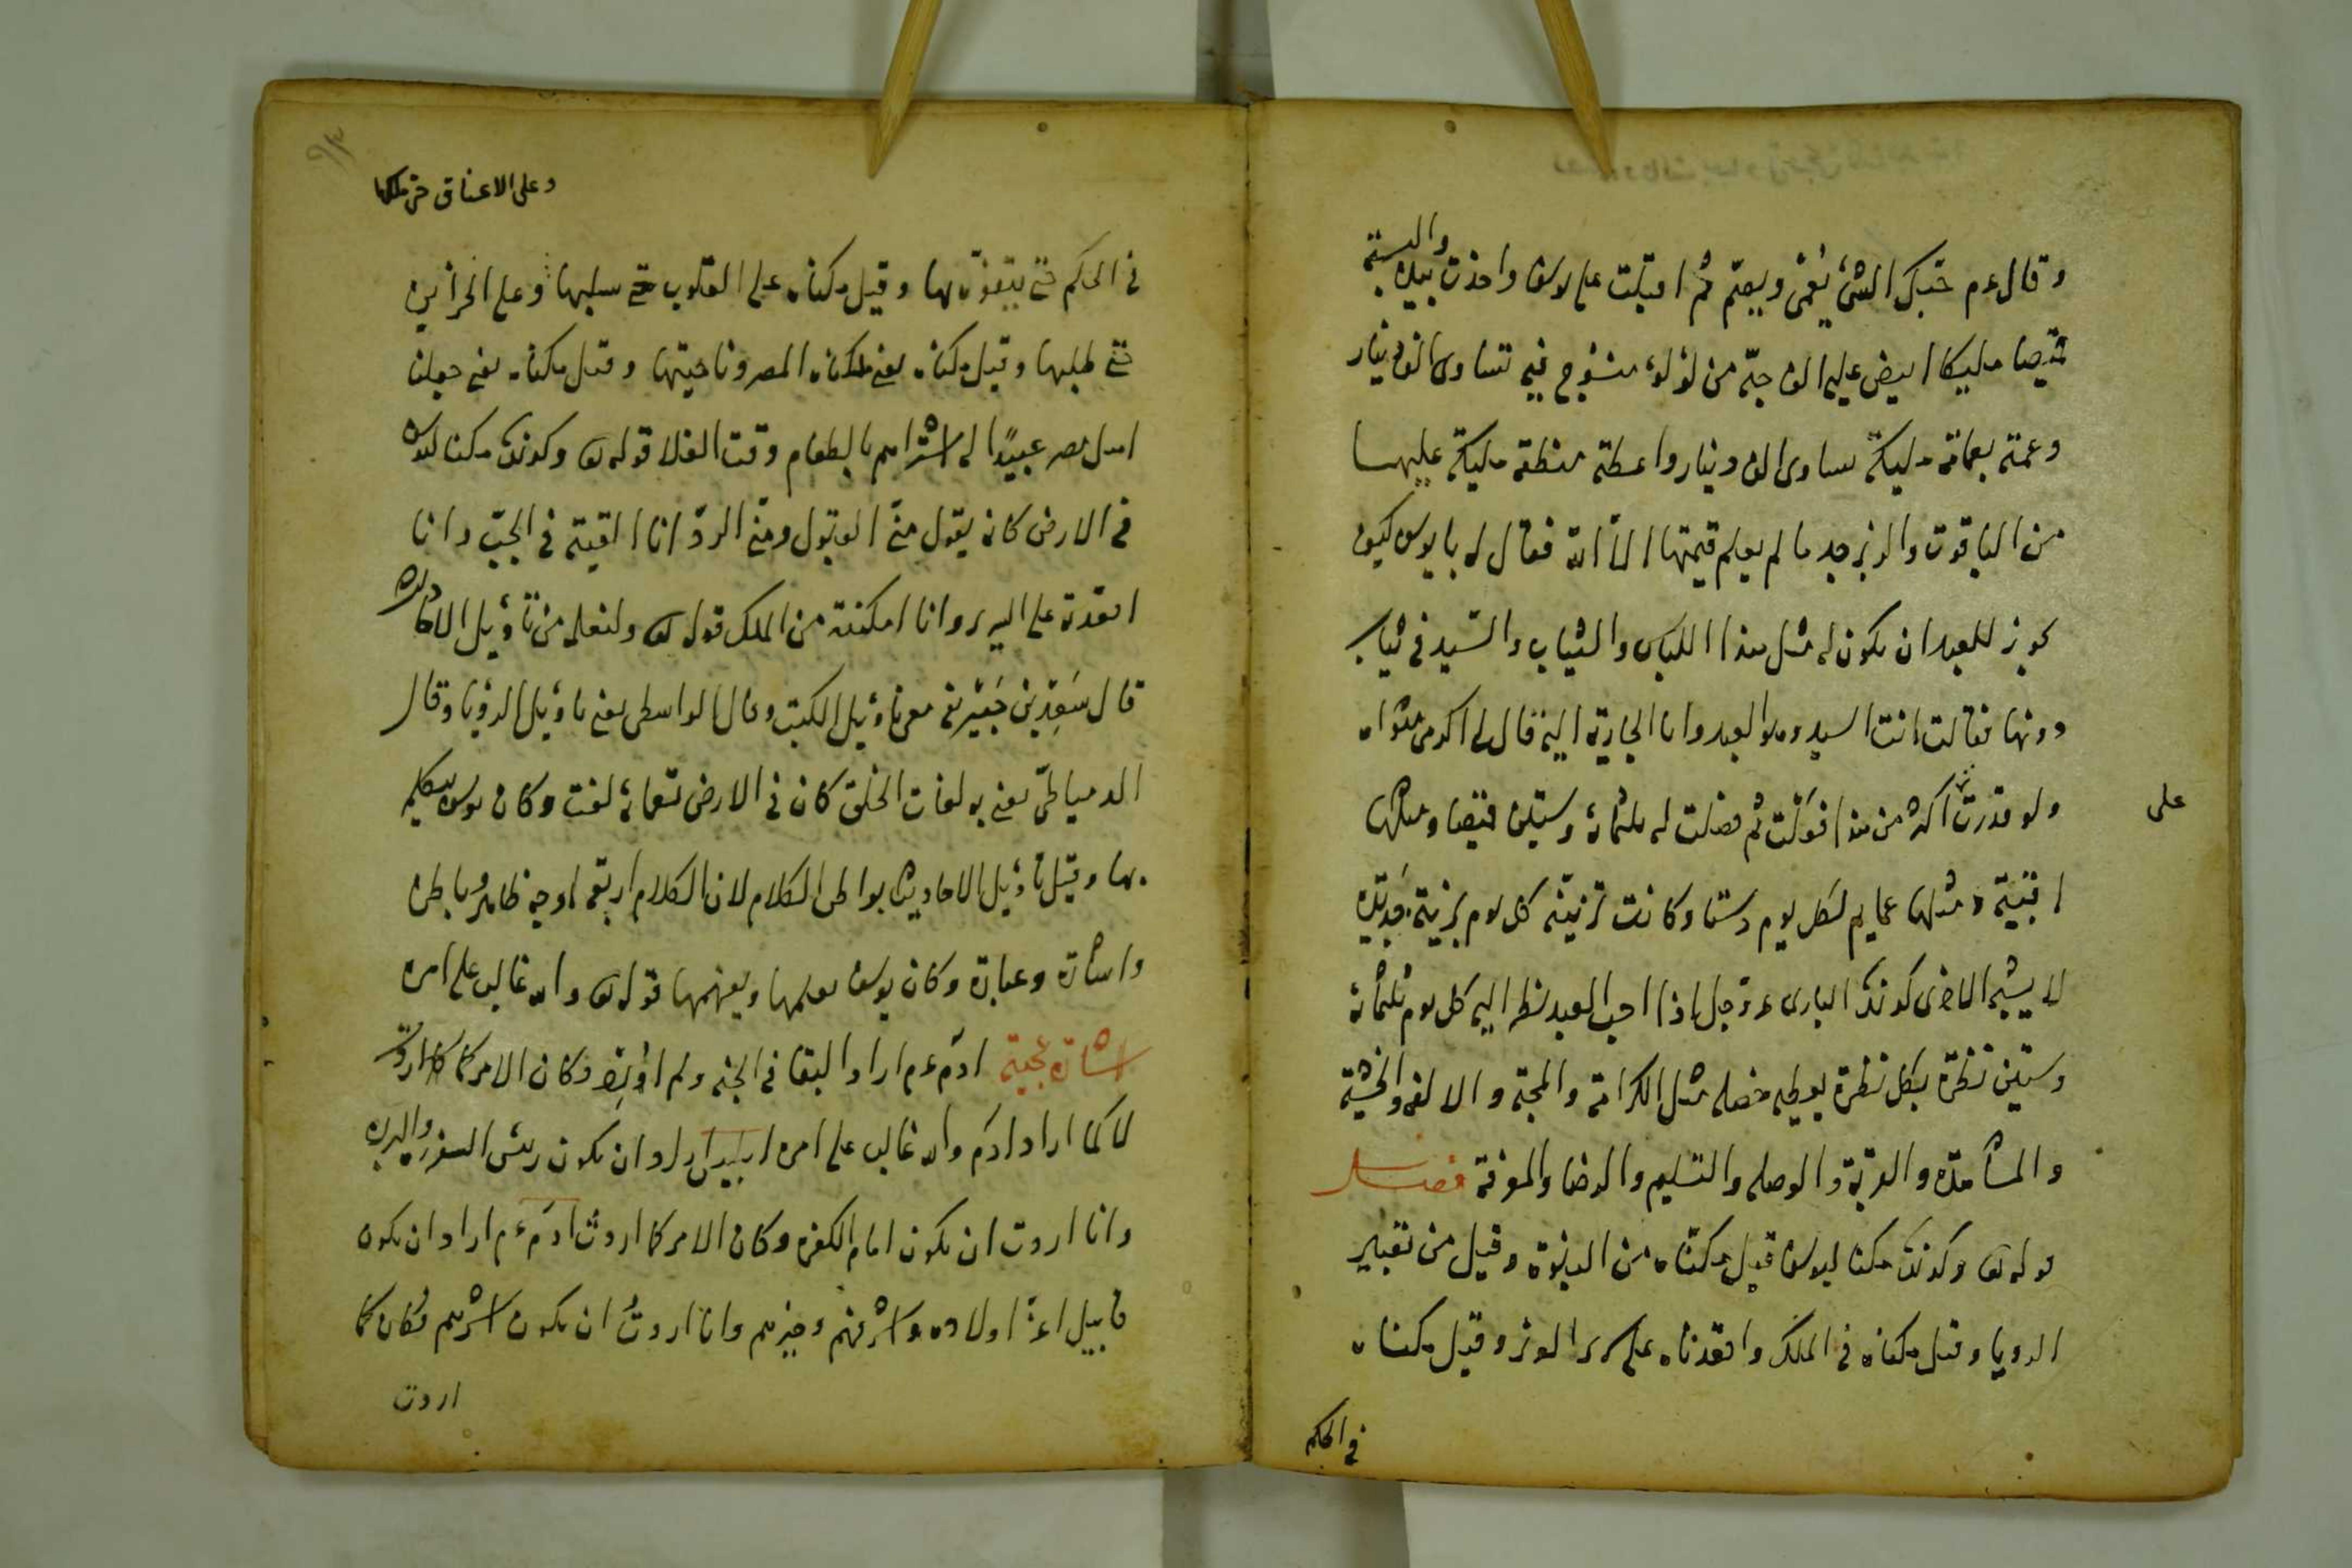 وقال عم حبك الشئ يُعمى ويصمّ ثم اقبلت على يوسف واخذت بيده والبسته
قميصا مليكا ابيض عليه الف حبّة من لؤلؤ منسوج فيه تساوى الف دينار
وعمته بعمامة مليكة تساوى الف دينار واعطته منطقة مليكة عليها
من الياقوت والزبرجد ما لم يعلم قيمتها الا الله فقال له يا يوسف كيف
يجوز للعبد ان يكون له مثل هذا اللباس والثياب والسيد فى ثياب
دونها فقالت انت السيد وهو العبد وانا الجارية اليه قال لى اكرمى مثواه
ولو قدرت اكثر من هذا فعلت ثم فصلت له ثلثمائة وستين قميصا ومثلها
على
اقبية ومثلها عمايم لكل يوم دستا وكانت تزينه كل يوم بزينة جديدة
لا يشبه الاخرى كذلك البارى عز وجل اذا احب العبد نظر اليه كل يوم ثلثمائة
وستين نظرة بكل نظرة يعطيه خصله مثل الكرامة والمحبة والالفة والخشية
والمشاهدة والقربة والوصله والتسليم والرضا والمعرفة فصل
قوله تعالى وكذلك مكنا ليوسف قيل مكناه من النبوة وقيل من تعبير
الرويا وقيل مكناه فى الملك واقعدناه على سرير العز وقيل مكناه
فى الحكم
وعلى الاعناق حتى ملكها
فى الحكم حتى يتفوه بها وقيل مكناه على القلوب حتى سلبها وعلى الخزاين
حتى طلبها وقيل مكناه يعنى ملكناه المصر وناحيتها وقيل مكناه يعنى جعلنا
اهل مصر عبيدًا له اشتراهم بالطعام وقت الغلا قوله تعالى وكذلك مكنا ليوسف
فى الارض كانه يقول منّى القبول ومنّى الردّ انا القيته فى الجبّ وانا
اقعدته على السرير وانا امكنته من الملك قوله تعالى ولنعلمه من تأويل الاحاديث
قال سَعِيد بن جُبَيْر يعنى معنى تأويل الكتب وقال الواسطى يعنى تأويل الرؤيا وقال
الدمياطىّ يعنى به لغات الخلق كان فى الارض تسعمائة لغت وكان يوسف يتكلم
بها وقيل تأويل الاحاديث بواطن الكلام لان الكلام اربعة اوجه ظاهر وباطن
واشارة وعبارة وكان يوسف يعلمها ويفهمها قوله تعالى والله غالب على امره
اشارة عجيبة ادم عم اراد البقا فى الجنه ولم اُرِدْه فكان الامر كما اردتُ
لا كما اراد ادم والله غالب على امره ابليس اراد ان يكون رئيس السفرة والبررة
وانا اردت ان يكون امام الكفره وكان الامر كما اردتُ ادم عم اراد ان يكون
قابيل اعزّ اولاده واشرفهم وخيرهم وانا اردتُ ان يكون اشرهم فكان كما
اردت